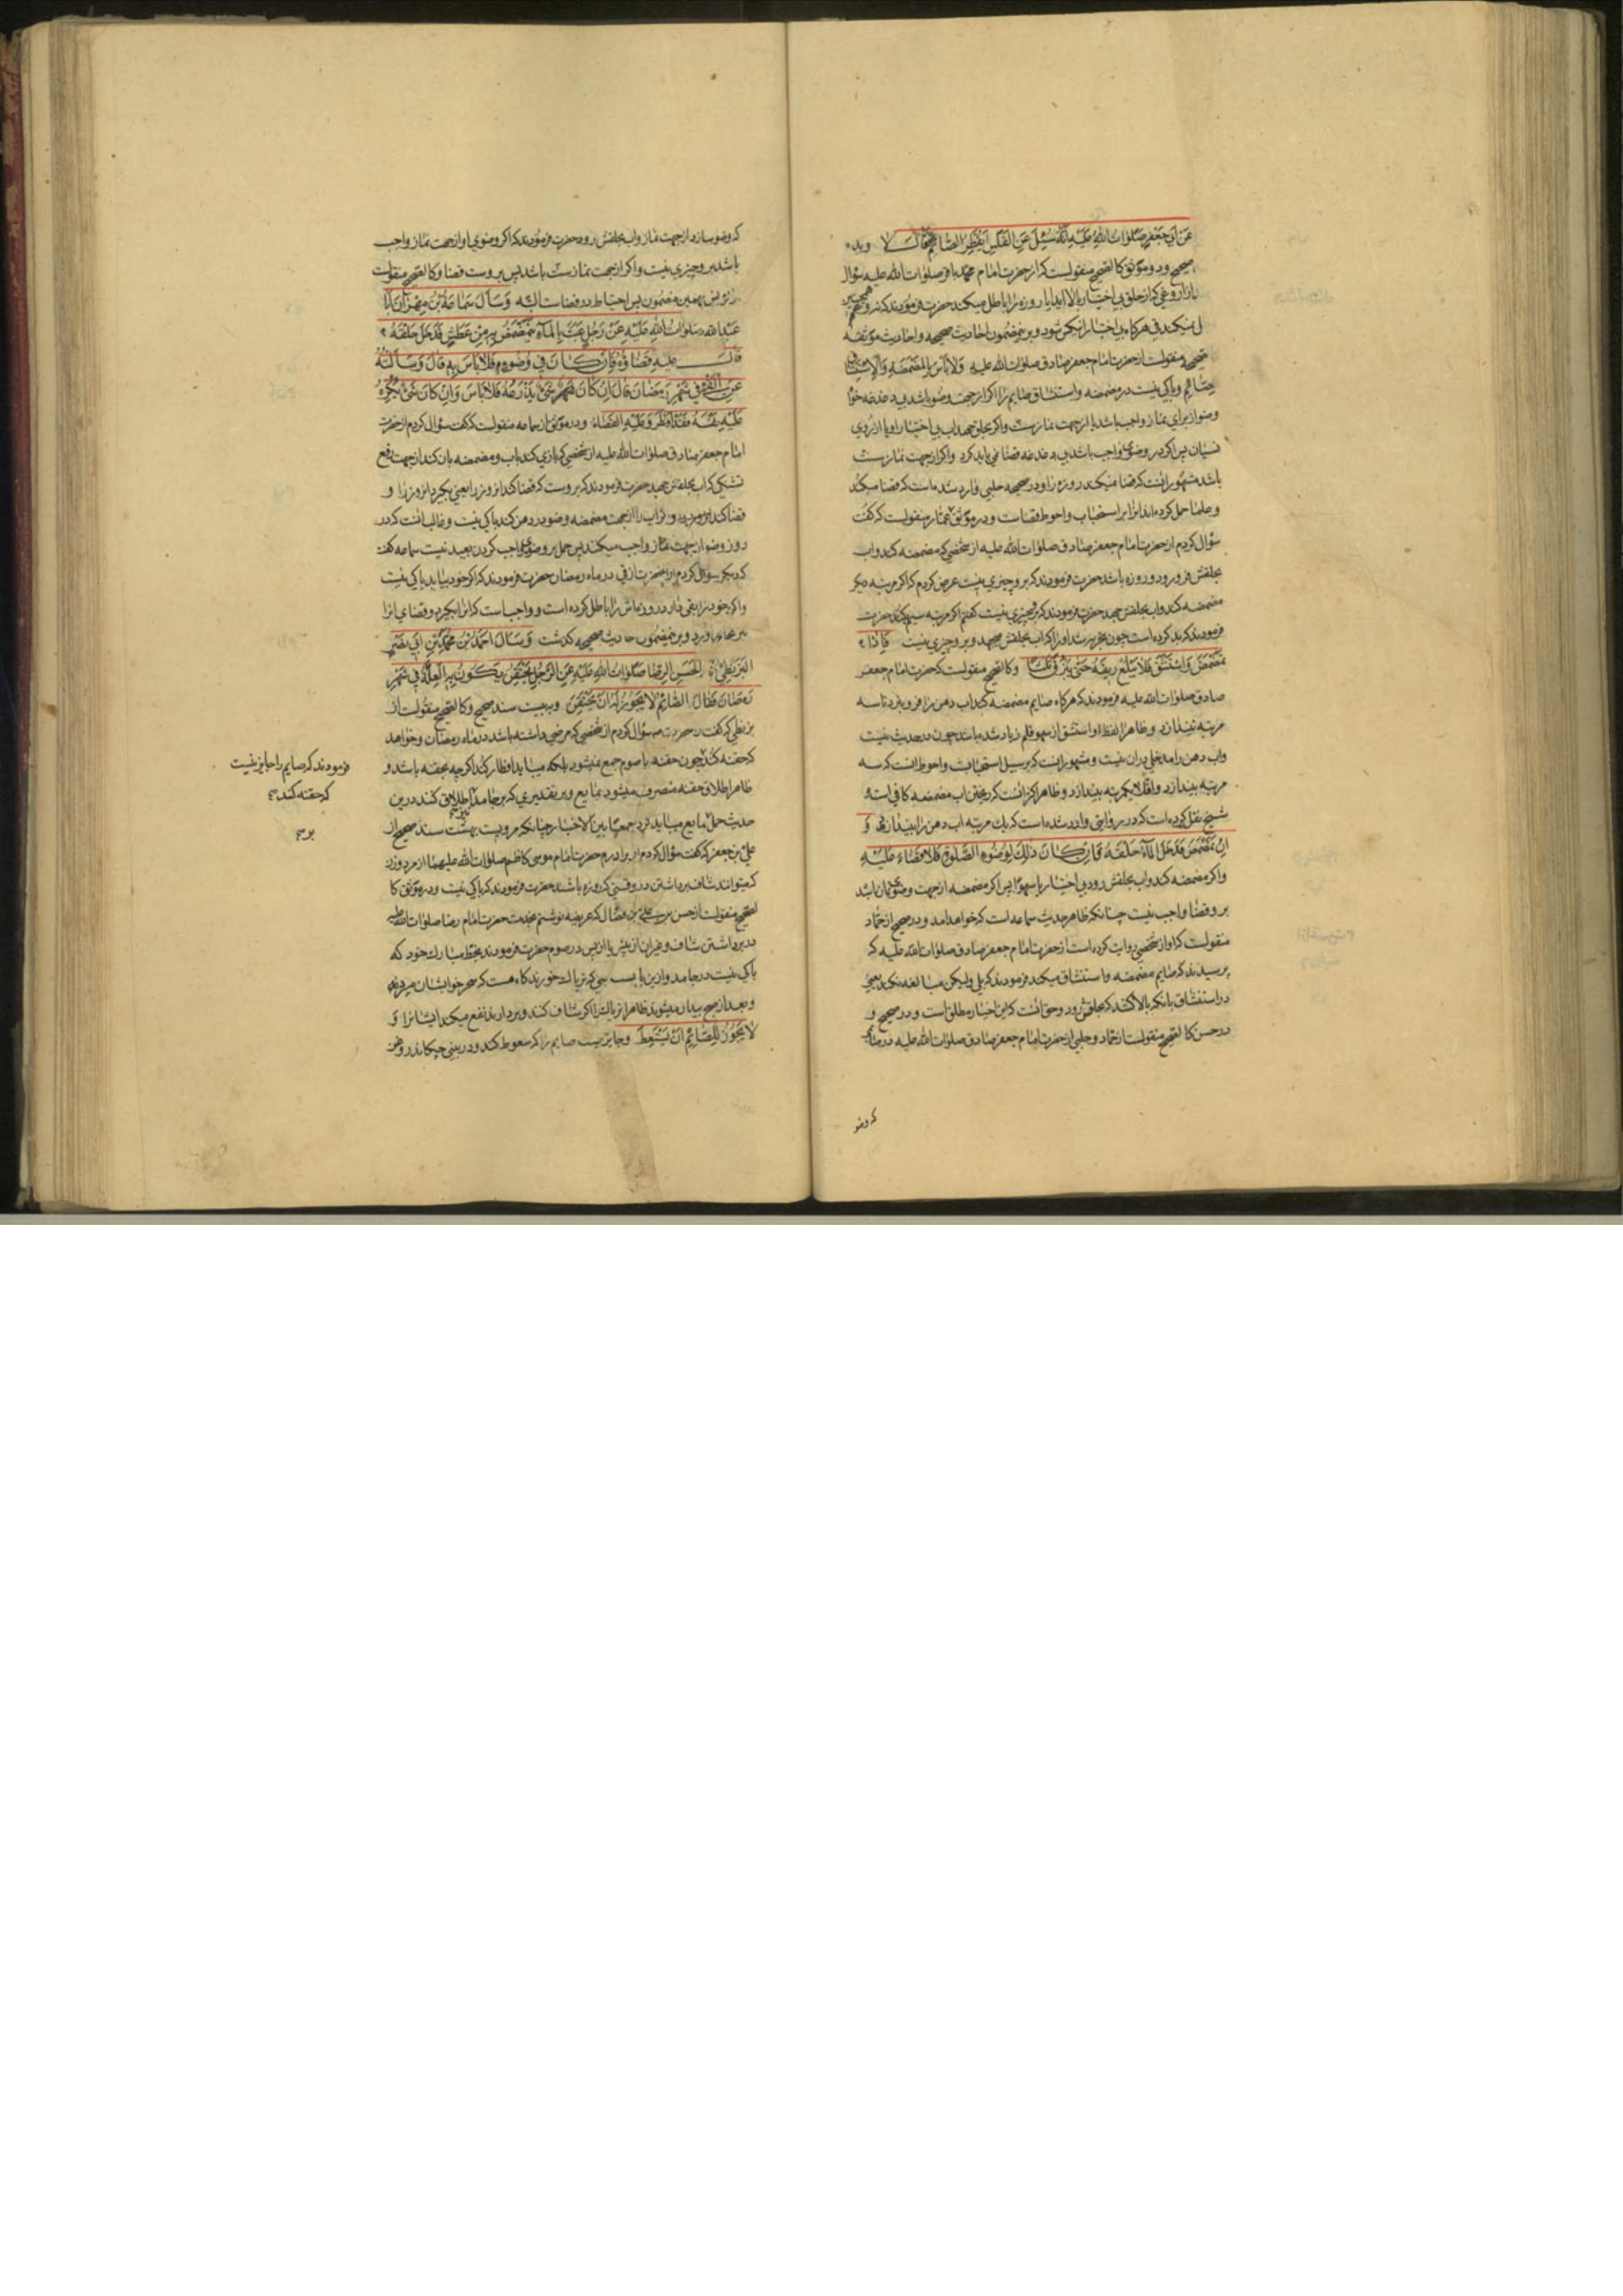 عَنْ اَبي جَعْفَرٍ صَلَوٰاتُ اللّٰهِ عَلَيْهِ اَنَّهُ سُئِلَ عَنِ القَلَسِ اَيُفْطِرُ الصّٰائِمَ قٰالَ لا وبده
صحيح ودو موثق كالصحيح منقولست كه از حضرت امام محمد باقر صلوات الله عليه سؤال
روغي كه از حلق بي اختيار بالا ايد ايا روزه را باطل ميكند حضرت فرمودند كه نه
نميكند في هر كاه بي اختيار و برين مضمون احاديث صحيحه واحاديث موثقه
صحيحه منقولست از حضرت امام جعفر صادق صلوات الله عليه وَلاٰ بَأسَ بِالمَضْمَضَةِ وَالاِسْتِنْشٰاقِ
وباكي نيست در مضمضه واستنشاق صايم را اكر از جهت وضو باشد بي دغدغه خواه
وضو از براي نماز واجب باشد يا از جهت نماز سنت واكر بحلق جهد اب بي اختيار او يا از روي
نسيان پس اكر در وضوي واجب باشد بي دغدغه قضا نمي بايد كرد واكر از جهت نماز سنت
باشد مشهور انست كه قضا نميكند روزه را ودر صحيحه حلبي وارد شده است كه قضا ميكند
وعلما حمل كرده اند انرا بر استحباب واحوط قضاست ودر موثق عمار منقولست كه كفت
سؤال كردم از حضرت امام جعفر صادق صلوات الله عليه از شخصي كه مضمضه كند واب
بحلقش فرو رود وروزه باشد حضرت فرمودند كه برو چيزي نيست عرض كردم كه اكر مرتبه ديكر
مضمضه كند واب بحلقش جهد حضرت فرمودند كه برو چيزي نيست كفتم اكر مرتبه سيم كند حضرت
فرمودند كه بد كرده است چون مرتبه شد او را كه اب بحلقش ميجهد وبرو چيزي نيست فَاِذٰا
تَمَضْمَضَ وَاسْتَنْشَقَ فَلاٰ يَبْلَعْ رِيقَهُ حَتّىٰ يَبْزُقَ ثَلٰثاً وكالصحيح منقولست كه حضرت امام جعفر
صادق صلوات الله عليه فرمودند كه هر كاه صايم مضمضه كند اب دهن را فرو نبرد تا سه
مرتبه بيندازد وظاهرا لفظ او استنشق از سهو قلم زياد شده باشد چون در حديث نيست
واب دهن را مدخلي دران نيست ومشهور اينست كه بر سبيل استحبابست واحوط انست كه سه
مرتبه بيندازد واقلا يكمرتبه بيندازد وظاهرا كزانست كه ريختن اب مضمضه كافي است
شيخ نقل كرده است كه در روايتي وارد شده است كه يك مرتبه اب دهن را بيندازد وَ
اِنْ تَمَضْمَضَ فَدَخَلَ المٰآءُ حَلْقَهُ فَاِنْ كٰانَ ذٰلِكَ لِوُضُوءِ الصَّلوٰةِ فَلاٰ قَضٰاءَ عَلَيْهِ
واكر مضمضه كند واب بحلقش رود بي اختيار يا سهوا پس اكر مضمضه از جهت وضوي نماز باشد
برو قضا واجب نيست چنانكه ظاهر حديث سماعه است كه خواهد امد ودر صحيح از حماد
منقولست كه او از شخصي روايت كرده است از حضرت امام جعفر صادق صلوات الله عليه كه
پرسيدند كه صايم مضمضه واستنشاق ميكند فرمودند كه بلي وليكن مبالغه نكند يعني
در استنشاق بانكه بالا كشد كه بحلقش رود وحق انست كه اين اخبار مطلق است ودر صحيح و
در حسن كالصحيح منقولست از حماد وحلبي از حضرت امام جعفر صادق صلوات الله عليه در صائمي
كه وضو
كه وضو سازد از جهت نماز واب بحلقش رود حضرت فرمودند كه اكر وضوي او از جهت نماز واجب
باشد برو چيزي نيست واكر از جهت نماز سنت باشد پس بروست قضا وكالصحيح منقولست
از يونس بهمين مضمون پس احتياط در قضاست البته وَسَأَلَ سَمٰاعَةُ بْنُ مِهْرٰانَ اَبٰا
عَبْدِ اللّٰهِ صَلَوٰاتُ اللّٰهِ عَلَيْهِ عَنْ رَجُلٍ عَبَثَ بِالمٰآءِ يَتَمَضْمَضُ بِهِ مِنْ عَطَشٍ فَدَخَلَ حَلْقَهُ
قٰالَ عَلَيْهِ قَضٰاؤُهُ فَاِنْ كٰانَ في وُضُوءٍ فَلاٰ بَأسَ بِهِ قٰالَ وَسَأَلْتُهُ
عَنِ القَيْءِ في شَهْرِ رَمَضٰانَ قٰالَ اِنْ كٰانَ شَيْءٌ يَذْرَعُهُ فَلاٰ بَأسَ وَاِنْ كٰانَ شَيْءٌ يُكْرِهُ
عَلَيْهِ نَفْسَهُ فَقَدْ اَفْطَرَ وَعَلَيْهِ القَضٰاءُ ودر موثق از سماعه منقولست كه كفت سؤال كردم از حضرت
امام جعفر صادق صلوات الله عليه از شخصي كه بازي كند باب ومضمضه بان كند از جهت رفع
تشنكي كه اب بحلقش جهد حضرت فرمودند كه بروست كه قضا كند انروز را يعني بكيرد انروز را و
قضا كند واكر اب را از جهت مضمضه وضو در دهن كند باكي نيست وغالب انست كه در
روز وضو از جهت نماز واجب ميكنند پس حمل بر وضوي واجب كردن بعيد نيست سماعه كفت
كه ديكر سؤال كردم از انحضرت از قي در ماه رمضان حضرت فرمودند كه اكر خود بيايد باكي نيست
واكر خود را بقي دارد روزه اش را باطل كرده است وواجبست كه انرا بكيرد وقضاي انرا
بجاي اورد وبرينمضمون حاديث صحيحه كذشت وَسَأَلَ اَحْمَدُ بْنُ مُحَمَّدِ بْنِ اَبي نَصْرٍ
البَزَنْطِيُّ اَبَا الحَسَنِ الرِضٰا صَلَوٰاتُ اللّٰهِ عَلَيْهِ عَنِ الرَّجُلِ يَحْتَقِنُ يَكُونُ بِهِ العِلَّةُ في شَهْرِ
رَمَضٰانَ فَقٰالَ الصّٰائِمُ لاٰ يَجُوزُ لَهُ اَنْ يَحْتَقِنَ وببيست سند صحيح وكالصحيح منقولست از
بزنطي كه كفت از حضرت سؤال كردم از شخصي كه مرضي داشته باشد در ماه رمضان وخواهد
كه حقنه كند چون حقنه با صوم جمع نميشود بلكه ميبايد افطار كند اكر چه بحقنه باشد و
ظاهرا اطلاق حقنه منصرف ميشود بمايع وبر تقديري كه بر جامد نيز اطلاق كنند درين
حديث حمل بمايع ميبايد كرد جمعا بين الاخبار چنانكه مرويست بهشت سند صحيح از
علي بن جعفر كه كفت سؤال كردم از برادرم حضرت امام موسي كاظم صلوات الله عليهما از مرد وزن
كه ميتوانند شاف برداشتن در وقتي كه روزه باشند حضرت فرمودند كه باكي نيست ودر موثق كا
لصحيح منقولست از حسن بن علي بن فضال كه عريضه نوشتم بخدمت حضرت امام رضا صلوات الله عليه
در برداشتن شاف وغيران از پيش يا از پس در صوم حضرت فرمودند بخط مبارك خود كه
باكي نيست در جامد وازين باب كه ترياك خورند كاه هست كه سحر خوابشان ميبرد
وبعد از صبح بيدار ميشوند ظاهرا ترياك را اكر شاف كنند وبردارند نفع ميكند ايشانرا وَ
لاٰ يَجُوزُ لِلصّٰائِمِ اَنْ يَسْتَعِطَ وجايز نيست صايم را كه سعوط كند ودر بيني چكاند روغن
فرمودند كه صايم را جايز نيست
كه حقنه كند